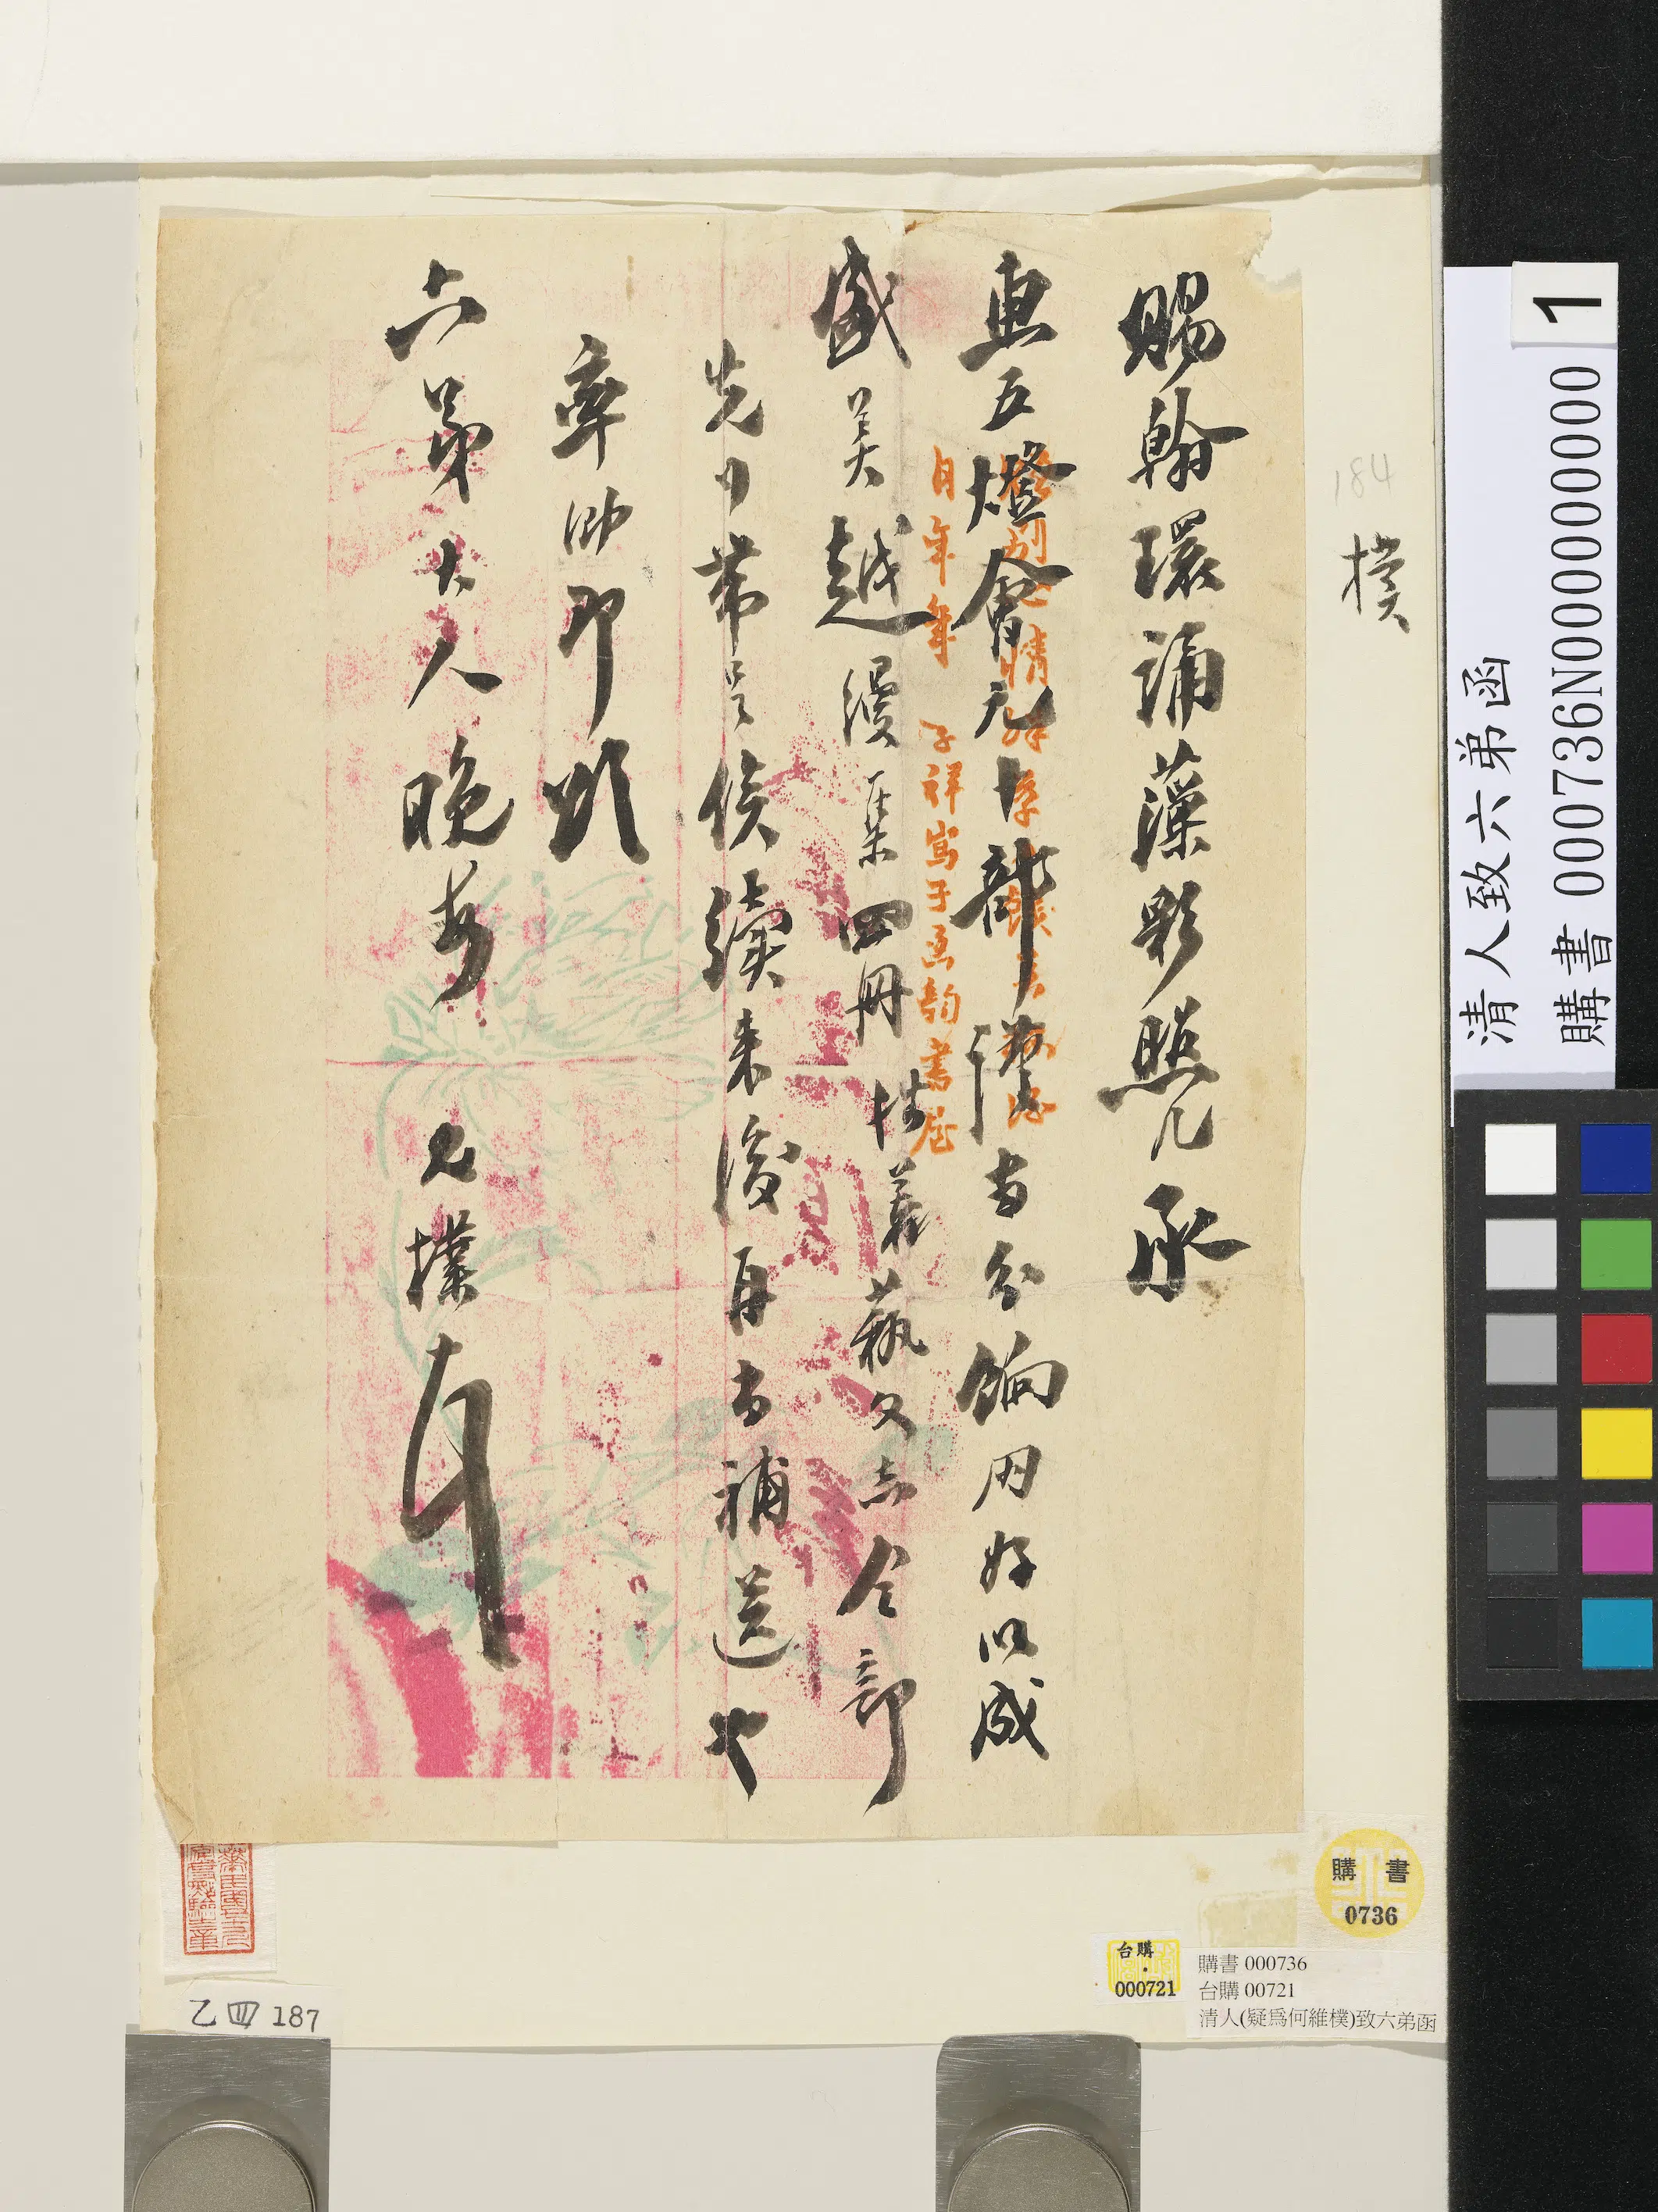 賜翰環誦藻彩照几承
惠五燈會元十部謹當分餉同好以成
盛美越縵集四冊桂義藝文志全部
先行帶呈俟續来後再當補送也
率泐即頌
六弟大人晚安 兄樸頓首
日年年 子祥寫于 韵書屋
184
樸
清人致六弟函
購書 000736N000000000
1
購書
0736
台購
000721
購書 000736
台購 00721
清人(疑爲何維樸)致六弟函
乙四187